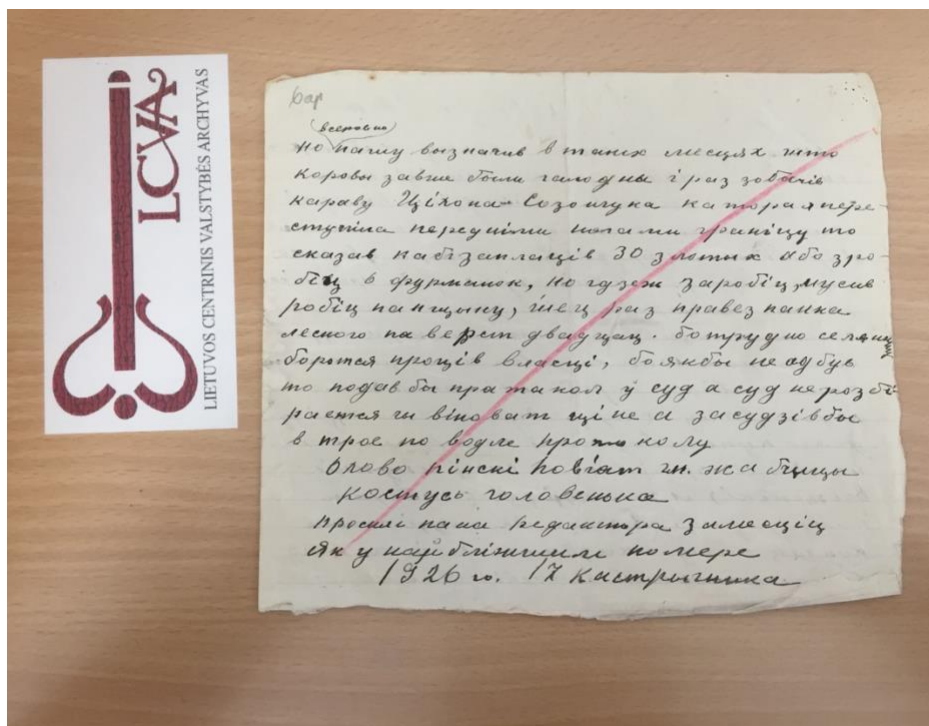 LCVA
LIETUVOS CENTRINIS VALSTYBĖS ARCHYVAS
бар
но пашу вызначив в таких месцях што
коровы завше были галодны і раз зобачів
караву Ціхона Созончука каторая пере-
ступіла передніми ногами граніцу то
сказав каб заплаців 30 злотых або зро-
біц 6 фурманок, но гдзеж заробіц, мусив
робіц панщыну, і ещ раз правез панка
лесного на верст двадцац. бо трудно селянину
боротся проців власці, бо якбы не одбув
то подав бы пратакол у суд а суд не розбі-
рается чи віноват ці не а засудзів бы
в трое по водле протоколу
Олово пінскі повіат гм. жабчыцы
костусь головенька
просим пана редактора замесціц
як у найбліжшим номере
1926 го. 17 Кастрычника